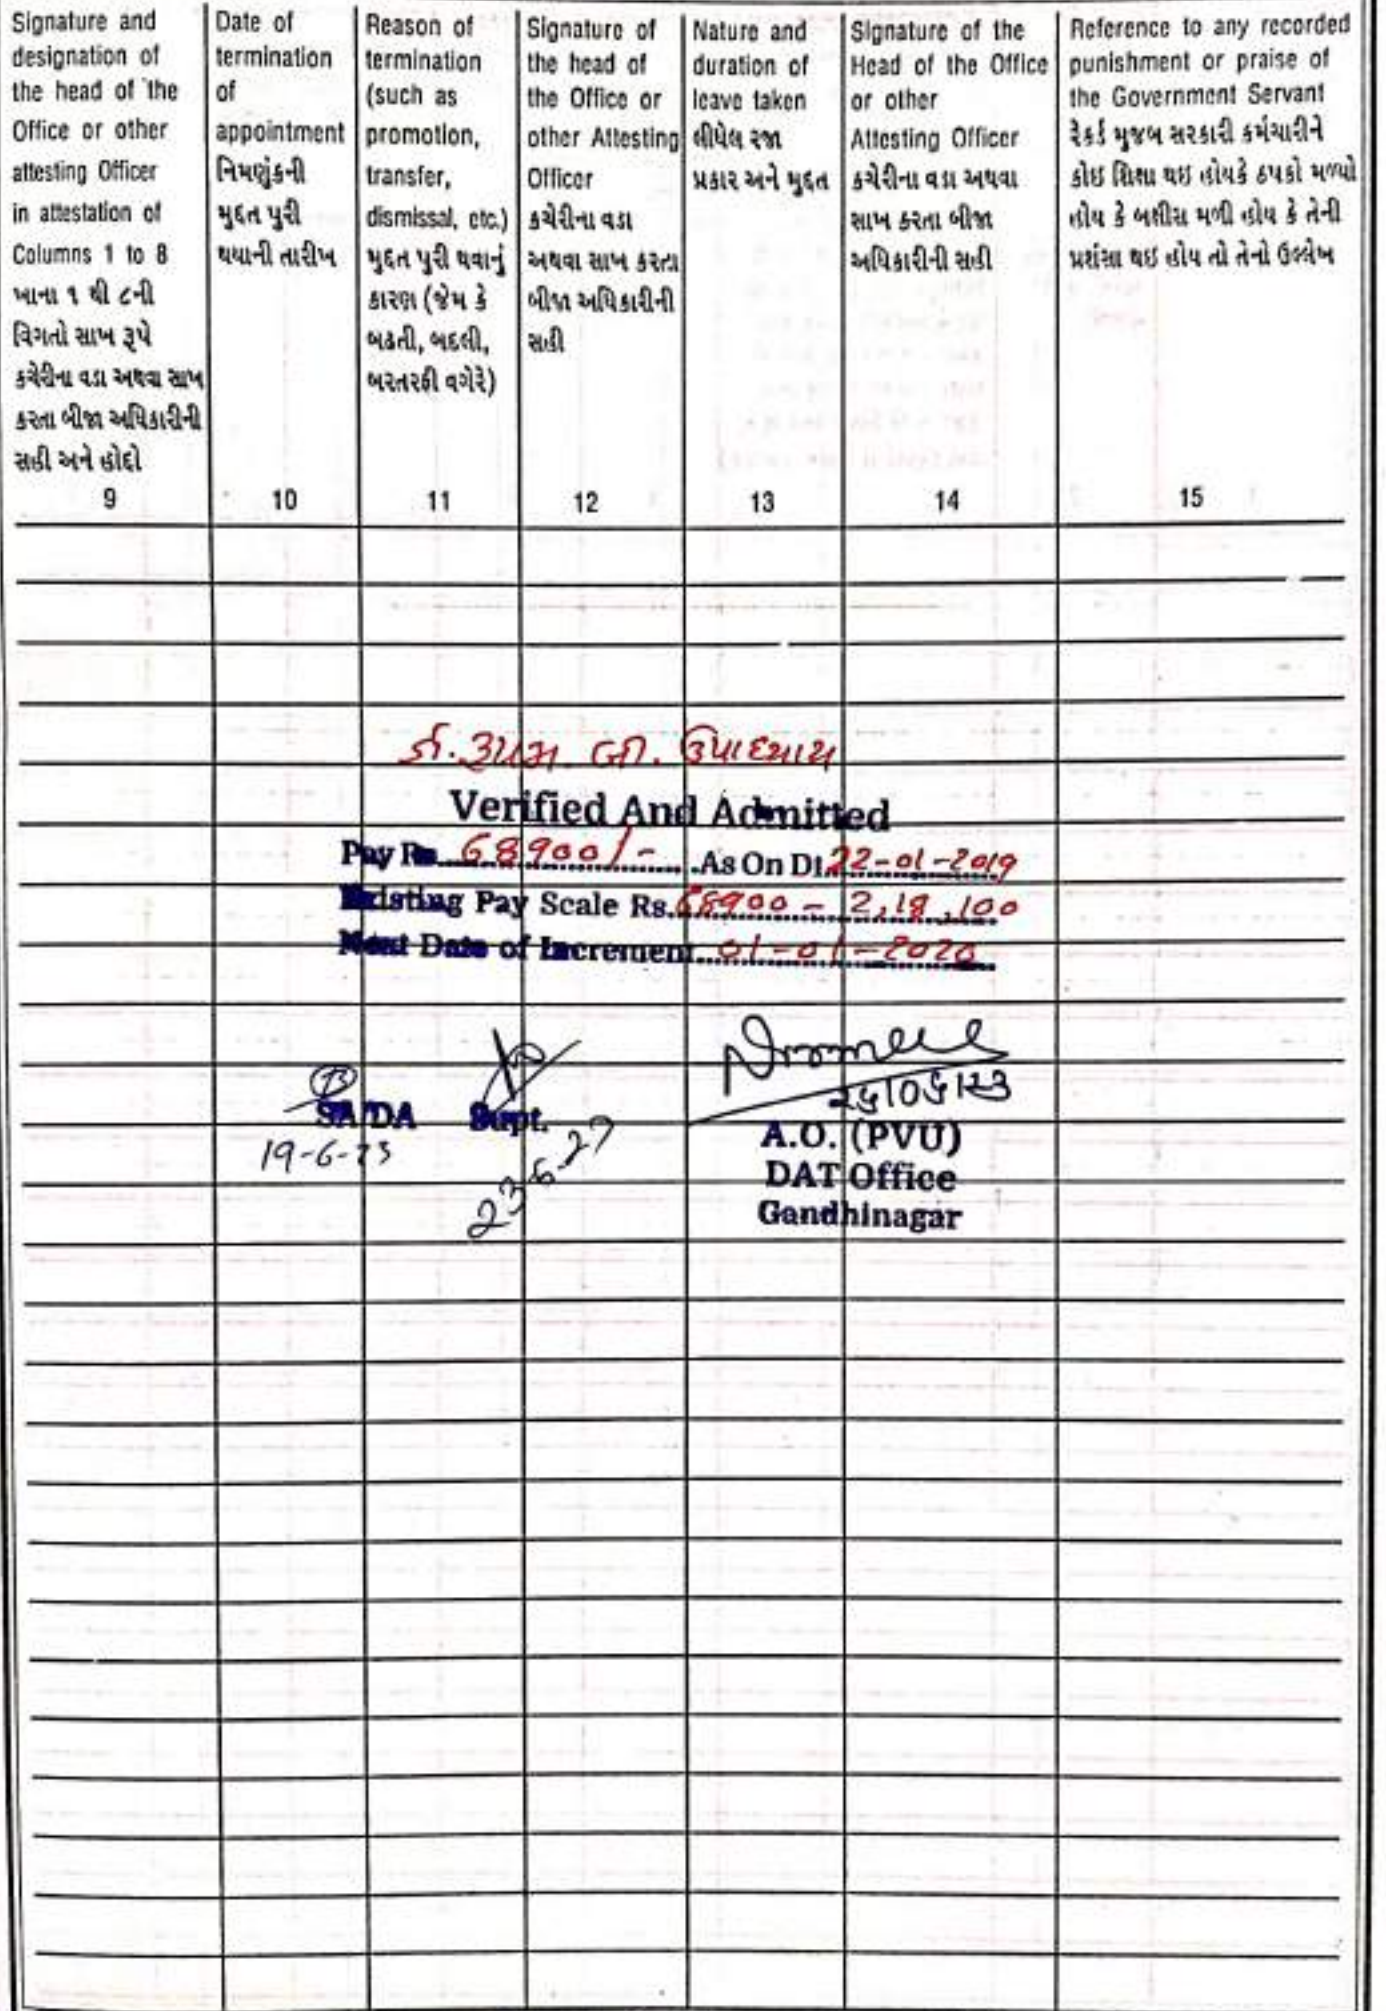 Signature and
designation of
the head of the
Office or other
attesting Officer
in attestation of
Columns 1 to 8
ખાના ૧ થી ૮ની
વિગતો સાખ રૂપે
કચેરીના વડા અથવા સાખ
કરતા બીજા અધિકારીની
સહી અને હોદ્દો
9
Date of
termination
of
appointment
નિમણુંકની
મુદ્દત પુરી
થયાની તારીખ
10
Reason of
termination
(such as
promotion,
transfer,
dismissal, etc.)
મુદ્દત પુરી થવાનું
કારણ (જેમ કે
બઢતી, બદલી,
બરતરફી વગેરે)
11
Signature of
the head of
the Office or
other Attesting
Officer
કચેરીના વડા
અથવા સાખ કરતા
બીજા અધિકારીની
સહી
12
Nature and
duration of
leave taken
લીધેલ રજા
પ્રકાર અને મુદ્દત
13
Signature of the
Head of the Office
or other
Attesting Officer
કચેરીના વડા અથવા
સાખ કરતા બીજા
અધિકારીની સહી
14
Reference to any recorded
punishment or praise of
the Government Servant
રેકર્ડ મુજબ સરકારી કર્મચારીને
કોઇ શિક્ષા થઇ હોયકે ઠપકો મળ્યો
હોય કે બક્ષીસ મળી હોય કે તેની
પ્રશંસા થઇ હોય તો તેનો ઉલ્લેખ
15
ડૉ. રૂપમ. બી. ઉપાધ્યાય
Verified And Admitted
Pay Rs. 68900/- As On Dt. 22-01-2019
Existing Pay Scale Rs. 68900 - 2,18,100
Next Date of Increment. 01-01-2020
SA/DA Supt.
19-6-23
૨૬/૦૬/૨૩
A.O. (PVU)
DAT Office
Gandhinagar